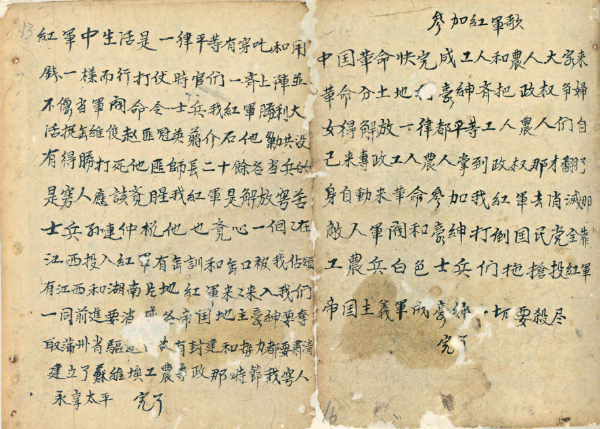 13
紅軍中生活是一律平等有穿吃和用
錢一樣而行打仗時官們一齊上陣並
不像當軍閥命令士兵我紅軍勝利大
活捉岳維俊赵匪冠英蔣介石他勦共没
有得勝打死他匪師長二十餘名當兵的
是窮人應該覚醒我紅軍是解放窮苦
士兵孙連仲 他也 心一個 在
江西投入紅軍有 訓和 口被我佔領
有江西和湖南片地紅軍来 来入我們
一同前進要消 帝国地主豪紳要奪
取滿州省驅 有封建和 力都要肅清
建立了蘇維埃工農專政那時節我窮人
永享太平 完了
参加紅軍歌
中国革命快完成工人和農人大家来
革命分土地 豪紳斉把政权争婦
女得解放一律都平等工人農人們自
己来專政工人農人掌到政权那才翻了
身自動来革命参加我紅軍去消滅那
敵人軍閥和豪紳打倒国民党全靠
工農兵白色士兵們拖搶投紅軍
帝国主義軍閥豪紳一切要殺尽
完了
16